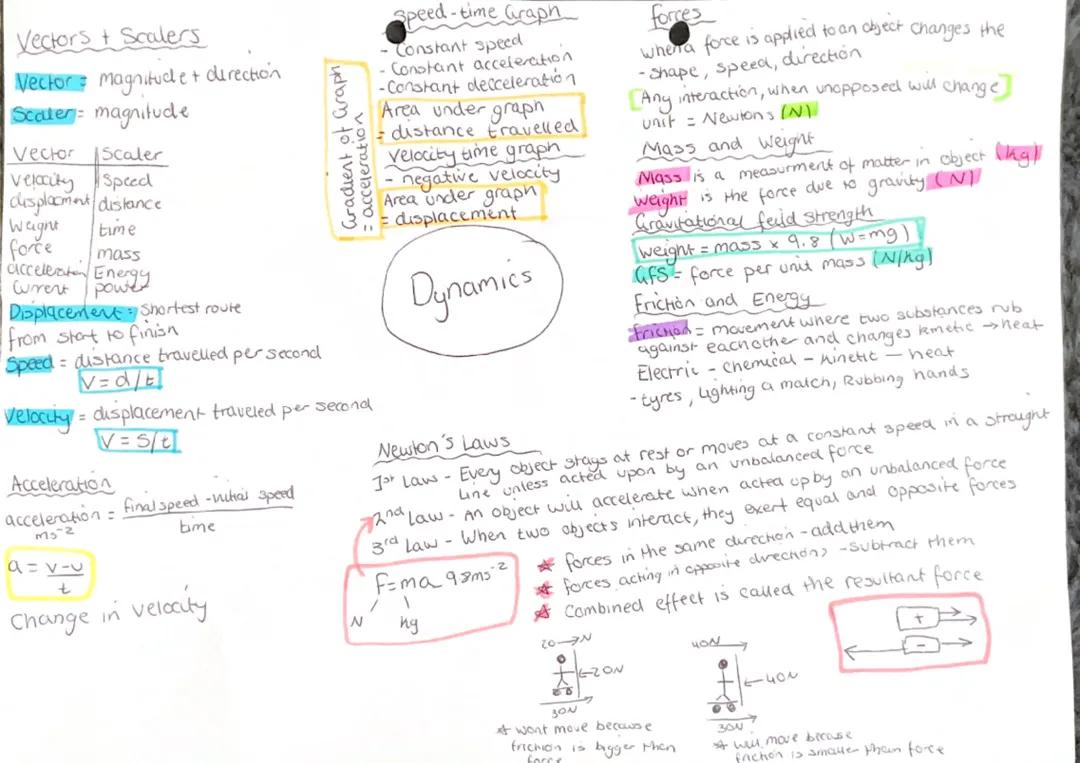 Vectors + Scalers
Vector = magnitude + direction
Scaler = magnitude
Vector Scaler
Velocity Speed
displacment distance
Weight time
force mass
acceleration Energy
Current power
Displacement = Shortest route
from start to finish
Speed = distance travelled per second
V = d/t
Velocity = displacement traveled per second
V = S/t
Acceleration
acceleration = final speed - initial speed
ms⁻² time
a = v-u
t
Change in velocity
Speed-time Graph
- Constant speed
- Constant acceleration
- Constant decceleration
Gradient of Graph
= acceleration
Area under graph
= distance travelled
Velocity time graph
- negative velocity
Area under graph
= displacement
Dynamics
forces
when a force is applied to an object changes the
- shape, speed, direction
[Any interaction, when unopposed will change]
unit = Newtons (N)
Mass and Weight
Mass is a measurment of matter in object (kg)
Weight is the force due to gravity (N)
Gravitational feild Strength
weight = mass x 9.8 (W=mg)
GFS = force per unit mass (N/kg)
Friction and Energy
friction = movement where two substances rub
against eachother and changes kinetic → heat
Electric - chemical - kinetic - heat
- tyres, Lighting a match, Rubbing hands
Newton's Laws
1st Law - Every object stays at rest or moves at a constant speed in a straught
line unless acted upon by an unbalanced force
2nd Law - An object will accelerate when acted up by an unbalanced force
3rd Law - When two objects interact, they exert equal and opposite forces
F=ma 9.8ms⁻²
N kg
☆ forces in the same direction - add them
☆ forces acting in opposite directions - Subtract them
☆ Combined effect is called the resultant force
+
-
20→N
←20N
30N
* wont move because
friction is bigger then
force
40N
←40N
30N
* will move becase
friction is smaller than force